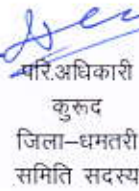 परि.अधिकारी
कुरूद
जिला–धमतरी
समिति सदस्य